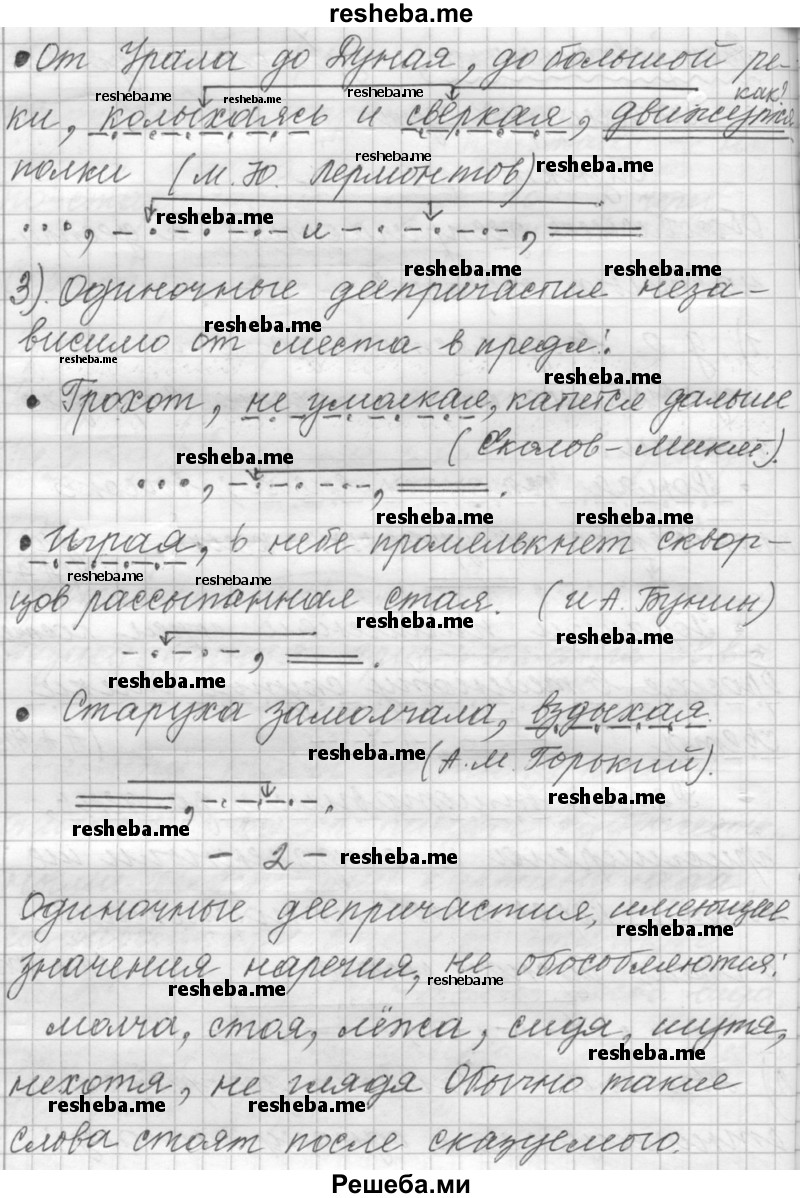 resheba.me
•От Урала до Дуная, до большой ре-
как?
resheba.me resheba.me resheba.me
ки, колыхаясь и сверкая, движутся
resheba.me
полки (М.Ю. Лермонтов) resheba.me
resheba.me
..., и ,
resheba.me resheba.me
3). Одиночные деепричастия неза-
resheba.me
висимо от места в предл:
resheba.me
resheba.me
• Грохот, не умолкая, катится дальше
(Сколов-Микит.).
resheba.me
..., , .
resheba.me resheba.me
• Играя, в небе промелькнет сквор-
resheba.me resheba.me
цов рассыпанная стая. (И А. Бунин)
resheba.me
resheba.me
, .
resheba.me
• Старуха замолчала, вздыхая.
resheba.me (А.М. Горький).
resheba.me
, .
resheba.me
- 2 - resheba.me
Одиночные деепричастия, имеющие
resheba.me
значения наречия, не обособляются:
resheba.me resheba.me
молча, стоя, лёжа, сидя, шутя,
resheba.me
нехотя, не глядя Обычно такие
resheba.me resheba.me
слова стоят после сказуемого.
Решеба.ми